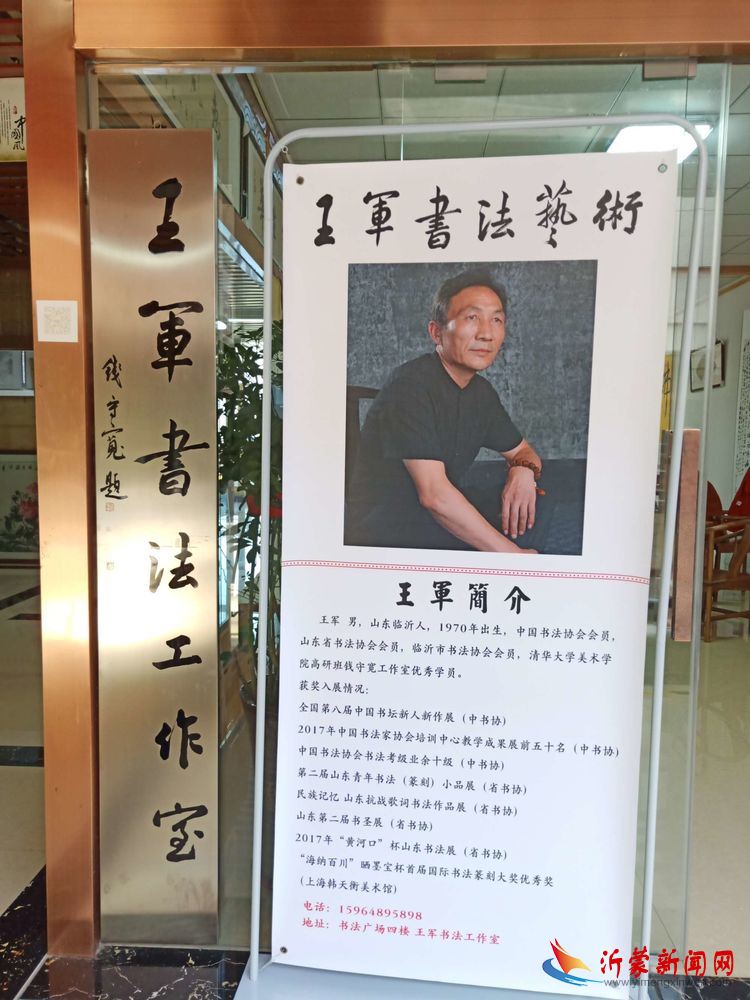 王軍書法工作室
錢守寬題
王軍書法藝術
王軍簡介
王军 男，山东临沂人，1970年出生，中国书法协会会员，
山东省书法协会会员，临沂市书法协会会员，清华大学美术学
院高研班钱守宽工作室优秀学员。
获奖入展情况：
全国第八届中国书坛新人新作展（中书协）
2017年中国书法家协会培训中心教学成果展前五十名（中书协）
中国书法协会书法考级业余十级（中书协）
第二届山东青年书法（篆刻）小品展（省书协）
民族记忆 山东抗战歌词书法作品展（省书协）
山东第二届书圣展（省书协）
2017年“黄河口”杯山东书法展（省书协）
“海纳百川”晒墨宝杯首届国际书法篆刻大奖优秀奖
（上海韩天衡美术馆）
电话：15964895898
地址：书法广场四楼 王军书法工作室
中國风
沂蒙新闻网
www.yimengxinwen.com